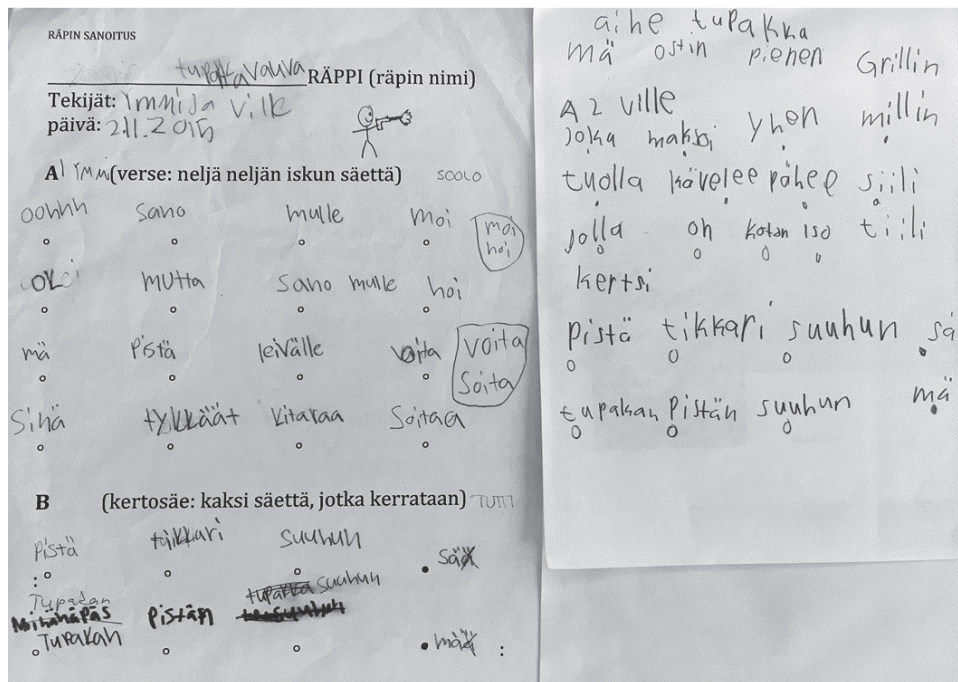 RÄPIN SANOITUS
tupakkavauva RÄPPI (räpin nimi)
Tekijät: Ymmi ja Ville
päivä: 2.11.2015
A1 Ymmi (verse: neljä neljän iskun säettä) SOOLO
oohhh sano mulle moi
moi
hoi
okei mutta sano mulle hoi
mä pistä leivälle voita
voita
soita
Sinä tykkäät kitaraa soitaa
B (kertosäe: kaksi säettä, jotka kerrataan) TUTTI
pistä tikkari suuhun sä
Tupakan pistän suuhun
Tupakan mä
aihe tupakka
mä ostin pienen Grillin
A2 ville
joka maksoi yhen millin
tuolla kävelee pöhee siili
jolla on kotan iso tiili
kertsi
pistä tikkari suuhun sä
tupakan pistän suuhun mä